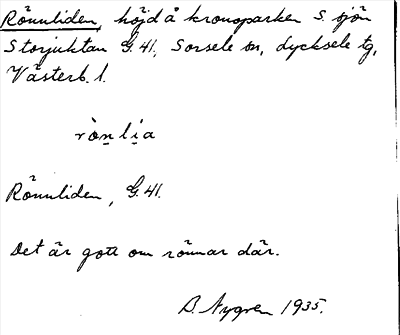 Rönnliden, höjd å kronoparken S. sjön
Storjuktan G. 41, Sorsele sn, Lycksele tg,
Västerb. l.
rò̀n̥ li̥a
Rönnliden, G. 41.
Det är gott om rönnar där.
B. Nygren 1935.